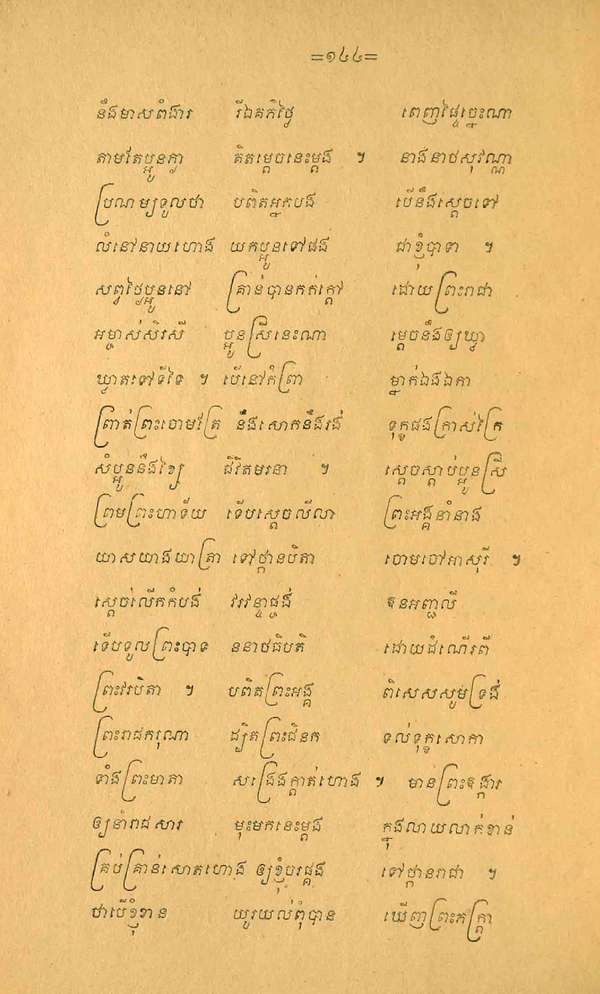 =១៤៤=
នឹងមាសពំងារ រីឯគក៏ថ្ងៃ ពេញផ្ទៃច្នេះណា
តាមតែប្អូនក្លា គិតម្ដេចនេះម្ដង ៗ នាងនាថសុវណ្ណា
ប្រណម្យទូលថា បពិតអ្នកបង បើនឹងស្ដេចទៅ
លំនៅនាយហោង យកប្អូនទៅផង ជាខ្ញុំបាទា ៗ
សព្វថ្ងៃប្អូននៅ គ្រាន់បានកក់ក្ដៅ ដោយព្រះរាជា
អម្ចាស់សិរសី ប្អូនស្រីនេះណា ម្ដេចនឹងឲ្យឃ្លា
ឃ្លាតទៅទីទៃ ៗ បើនៅកំព្រា ម្នាក់ឯងឯកា
ព្រាត់ព្រះចោមត្រៃ នឹងសោកនឹងរង់ ទុក្ខផងក្រាស់ក្រៃ
សំប្អូននឹងខ្សៃ ជីវិតមរនា ៗ ស្ដេចស្ដាប់ប្អូនស្រី
ព្រមព្រះហាទ័យ ទើបស្ដេចលីលា ព្រះអង្គនាំនាង
យាសយាងយាត្រា ទៅថ្កានបិតា ចោមចៅអាសុរី ៗ
ស្ដេចលើកកំបង់ វរវន្ទាផ្ចង់ ឧនអញ្ជលី
ទើបទូលព្រះបាទ ននាថធិបតី ដោយដំណើរពី
ព្រះវរបិតា ៗ បពិតព្រះអង្គ ពិសេសសូមទ្រង់
ព្រះរាជករុណា ដ្បិតព្រះជិនក ទល់ទុក្ខសោកា
ទាំងព្រះមាតា សង្រែងក្ដាត់ហោង ៗ មានព្រះឧង្ការ
ឲ្យនាំរាជសារ មុះមកនេះម្ដង ក្នុងលាយលាក់ខាន់
គ្រប់គ្រាន់សោតហោង ឲ្យខ្ញុំបរផ្គង ទៅថ្កានរាជា ៗ
ថាបើខ្ញុំខាន យូរយល់ពុំបាន ឃើញព្រះភក្ត្រា